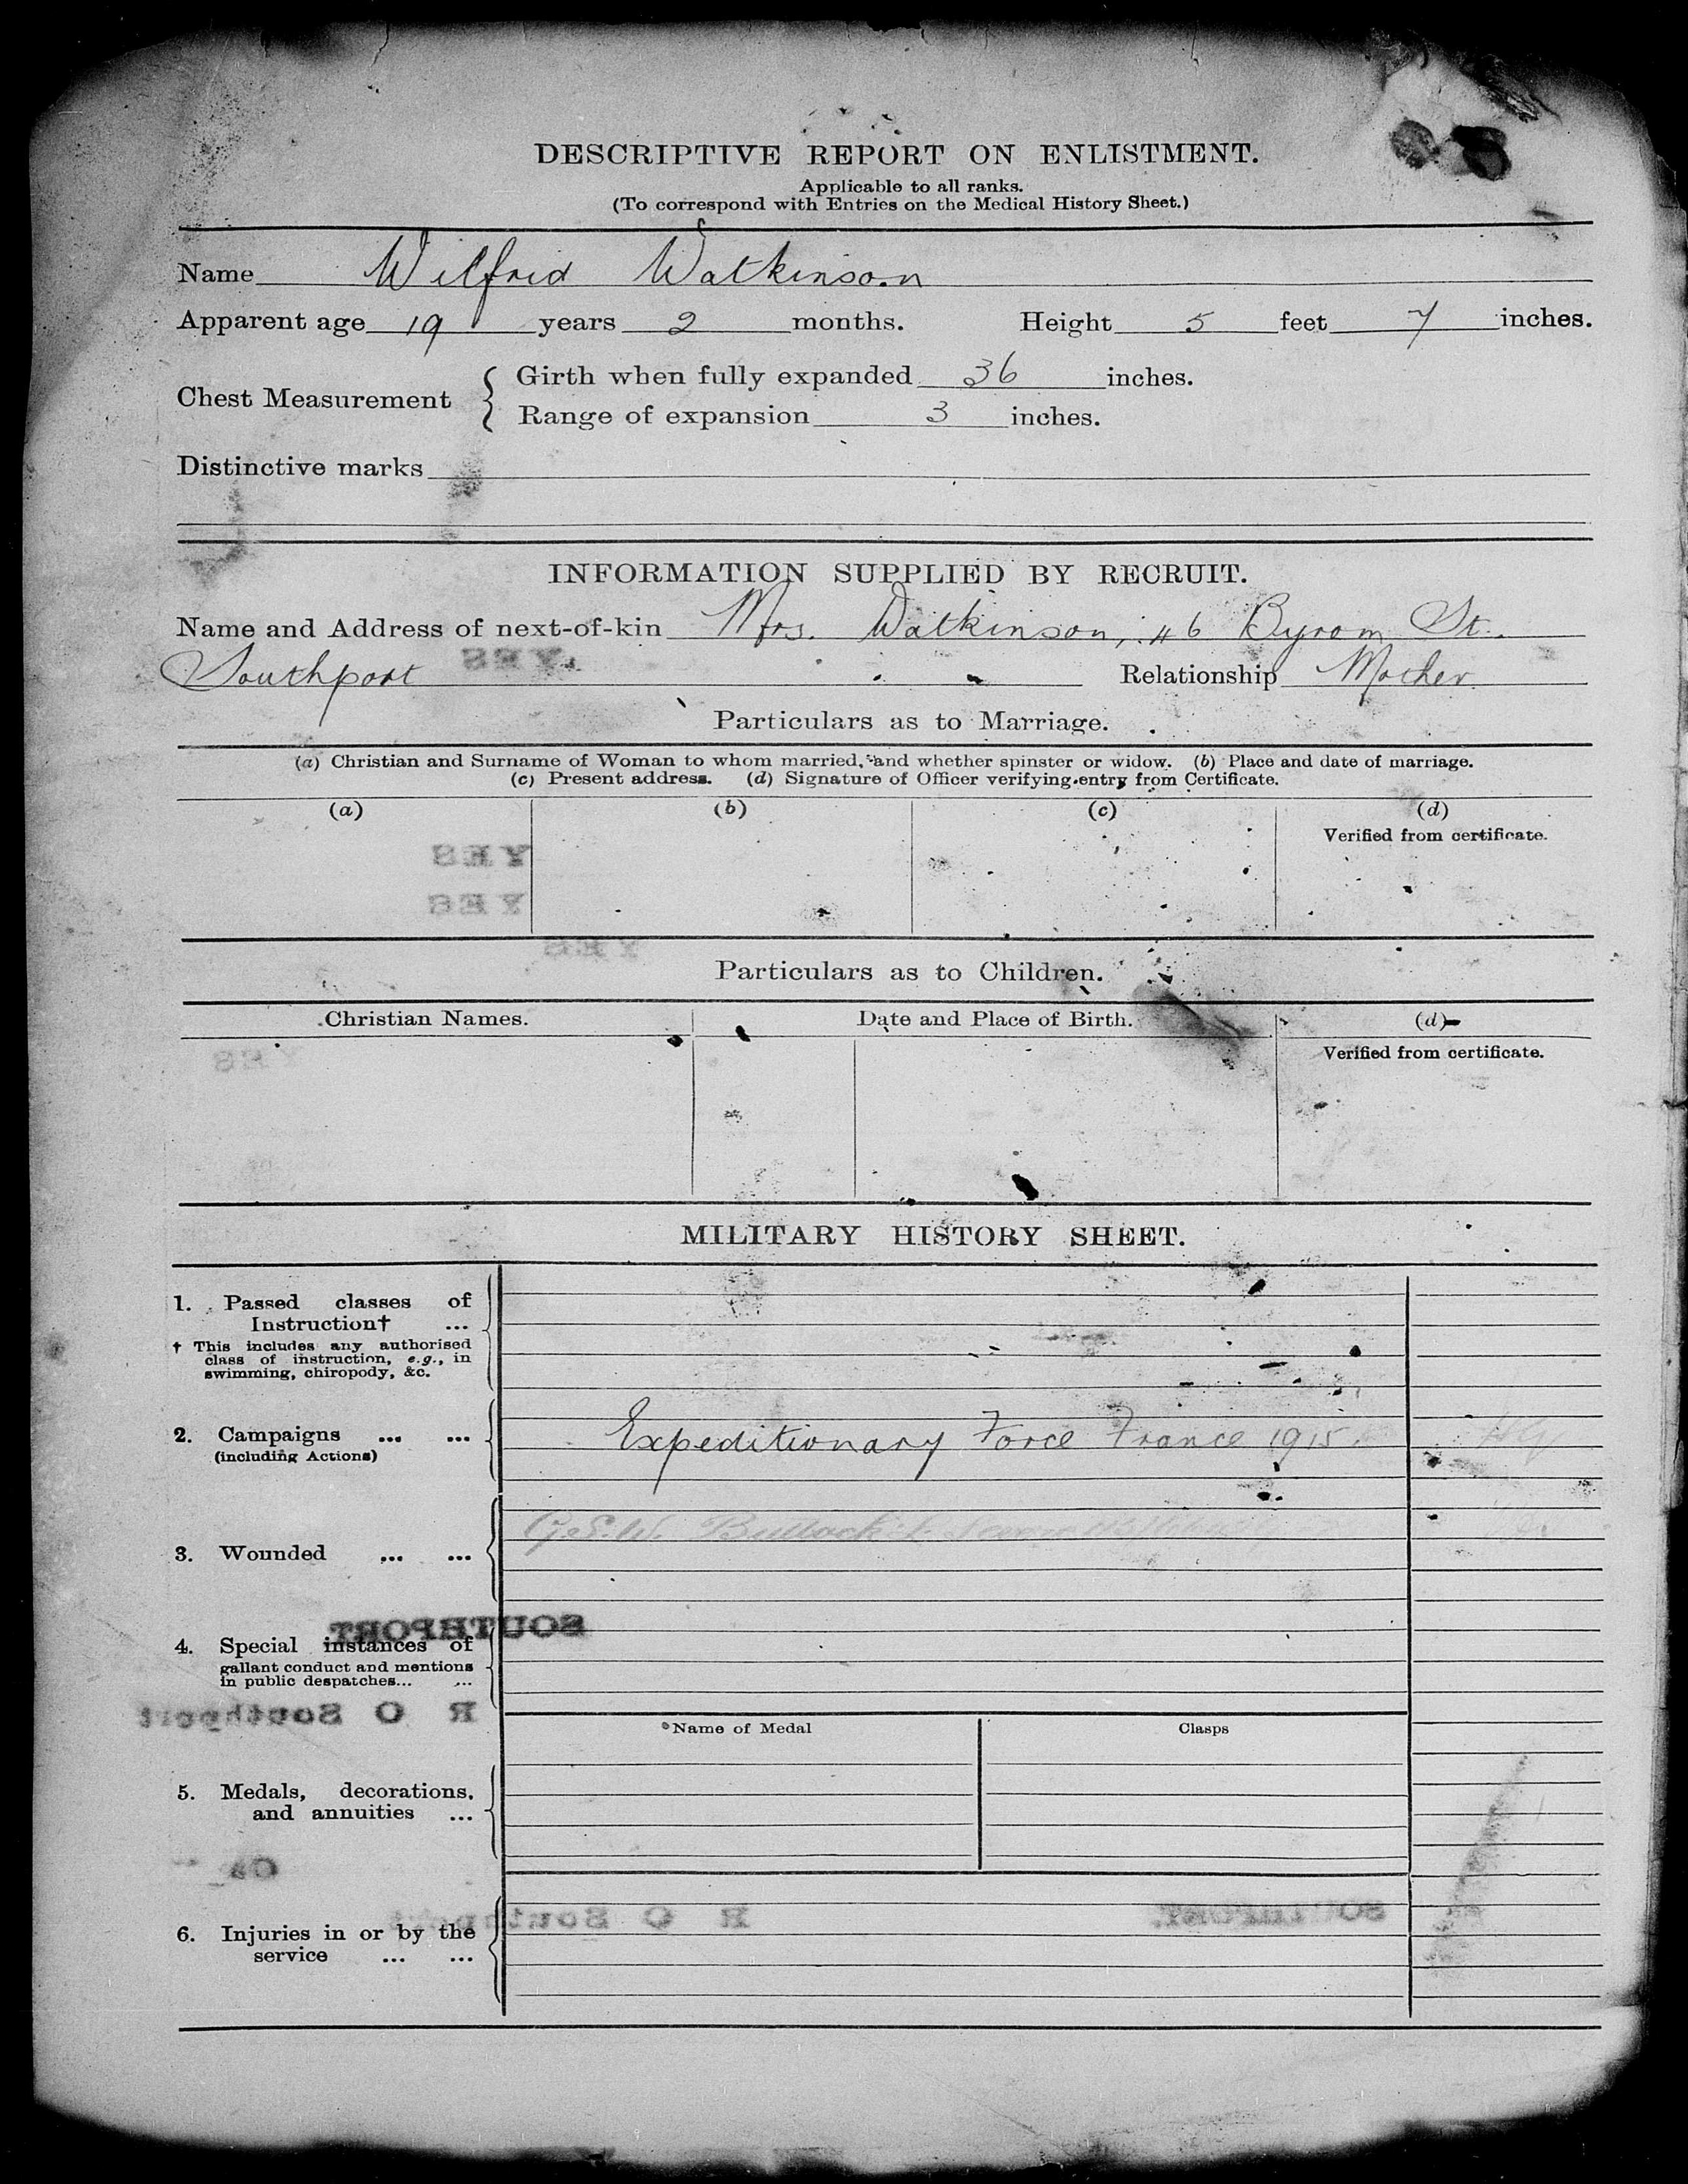 DESCRIPTIVE REPORT ON ENLISTMENT.
Applicable to all ranks.
(To correspond with Entries on the Medical History Sheet.)
Name Wilfrid Watkinson
Apparent age 19 years 2 months. Height 5 feet 7 inches.
Chest Measurement { Girth when fully expanded 36 inches.
Range of expansion 3 inches.
Distinctive marks
INFORMATION SUPPLIED BY RECRUIT.
Name and Address of next-of-kin Mrs. Watkinson, 46 Byrom St.
Southport Relationship Mother
YES
Particulars as to Marriage.
(a) Christian and Surname of Woman to whom married, and whether spinster or widow. (b) Place and date of marriage.
(c) Present address. (d) Signature of Officer verifying entry from Certificate.
(a) (b) (c) (d)
Verified from certificate.
YES
YES
YES
Particulars as to Children.
Christian Names. Date and Place of Birth. (d)
Verified from certificate.
YES
MILITARY HISTORY SHEET.
1. Passed classes of
Instruction† ...
† This includes any authorised
class of instruction, e.g., in
swimming, chiropody, &c.
2. Campaigns ... ... Expeditionary Force France 1915
(including Actions)
G.S.W. Buttock
3. Wounded ... ...
SOUTHPORT
4. Special instances of
gallant conduct and mentions
in public despatches... ...
R O Southport
Name of Medal Clasps
5. Medals, decorations,
and annuities ...
R O Southport SOUTHPORT.
6. Injuries in or by the
service ... ...